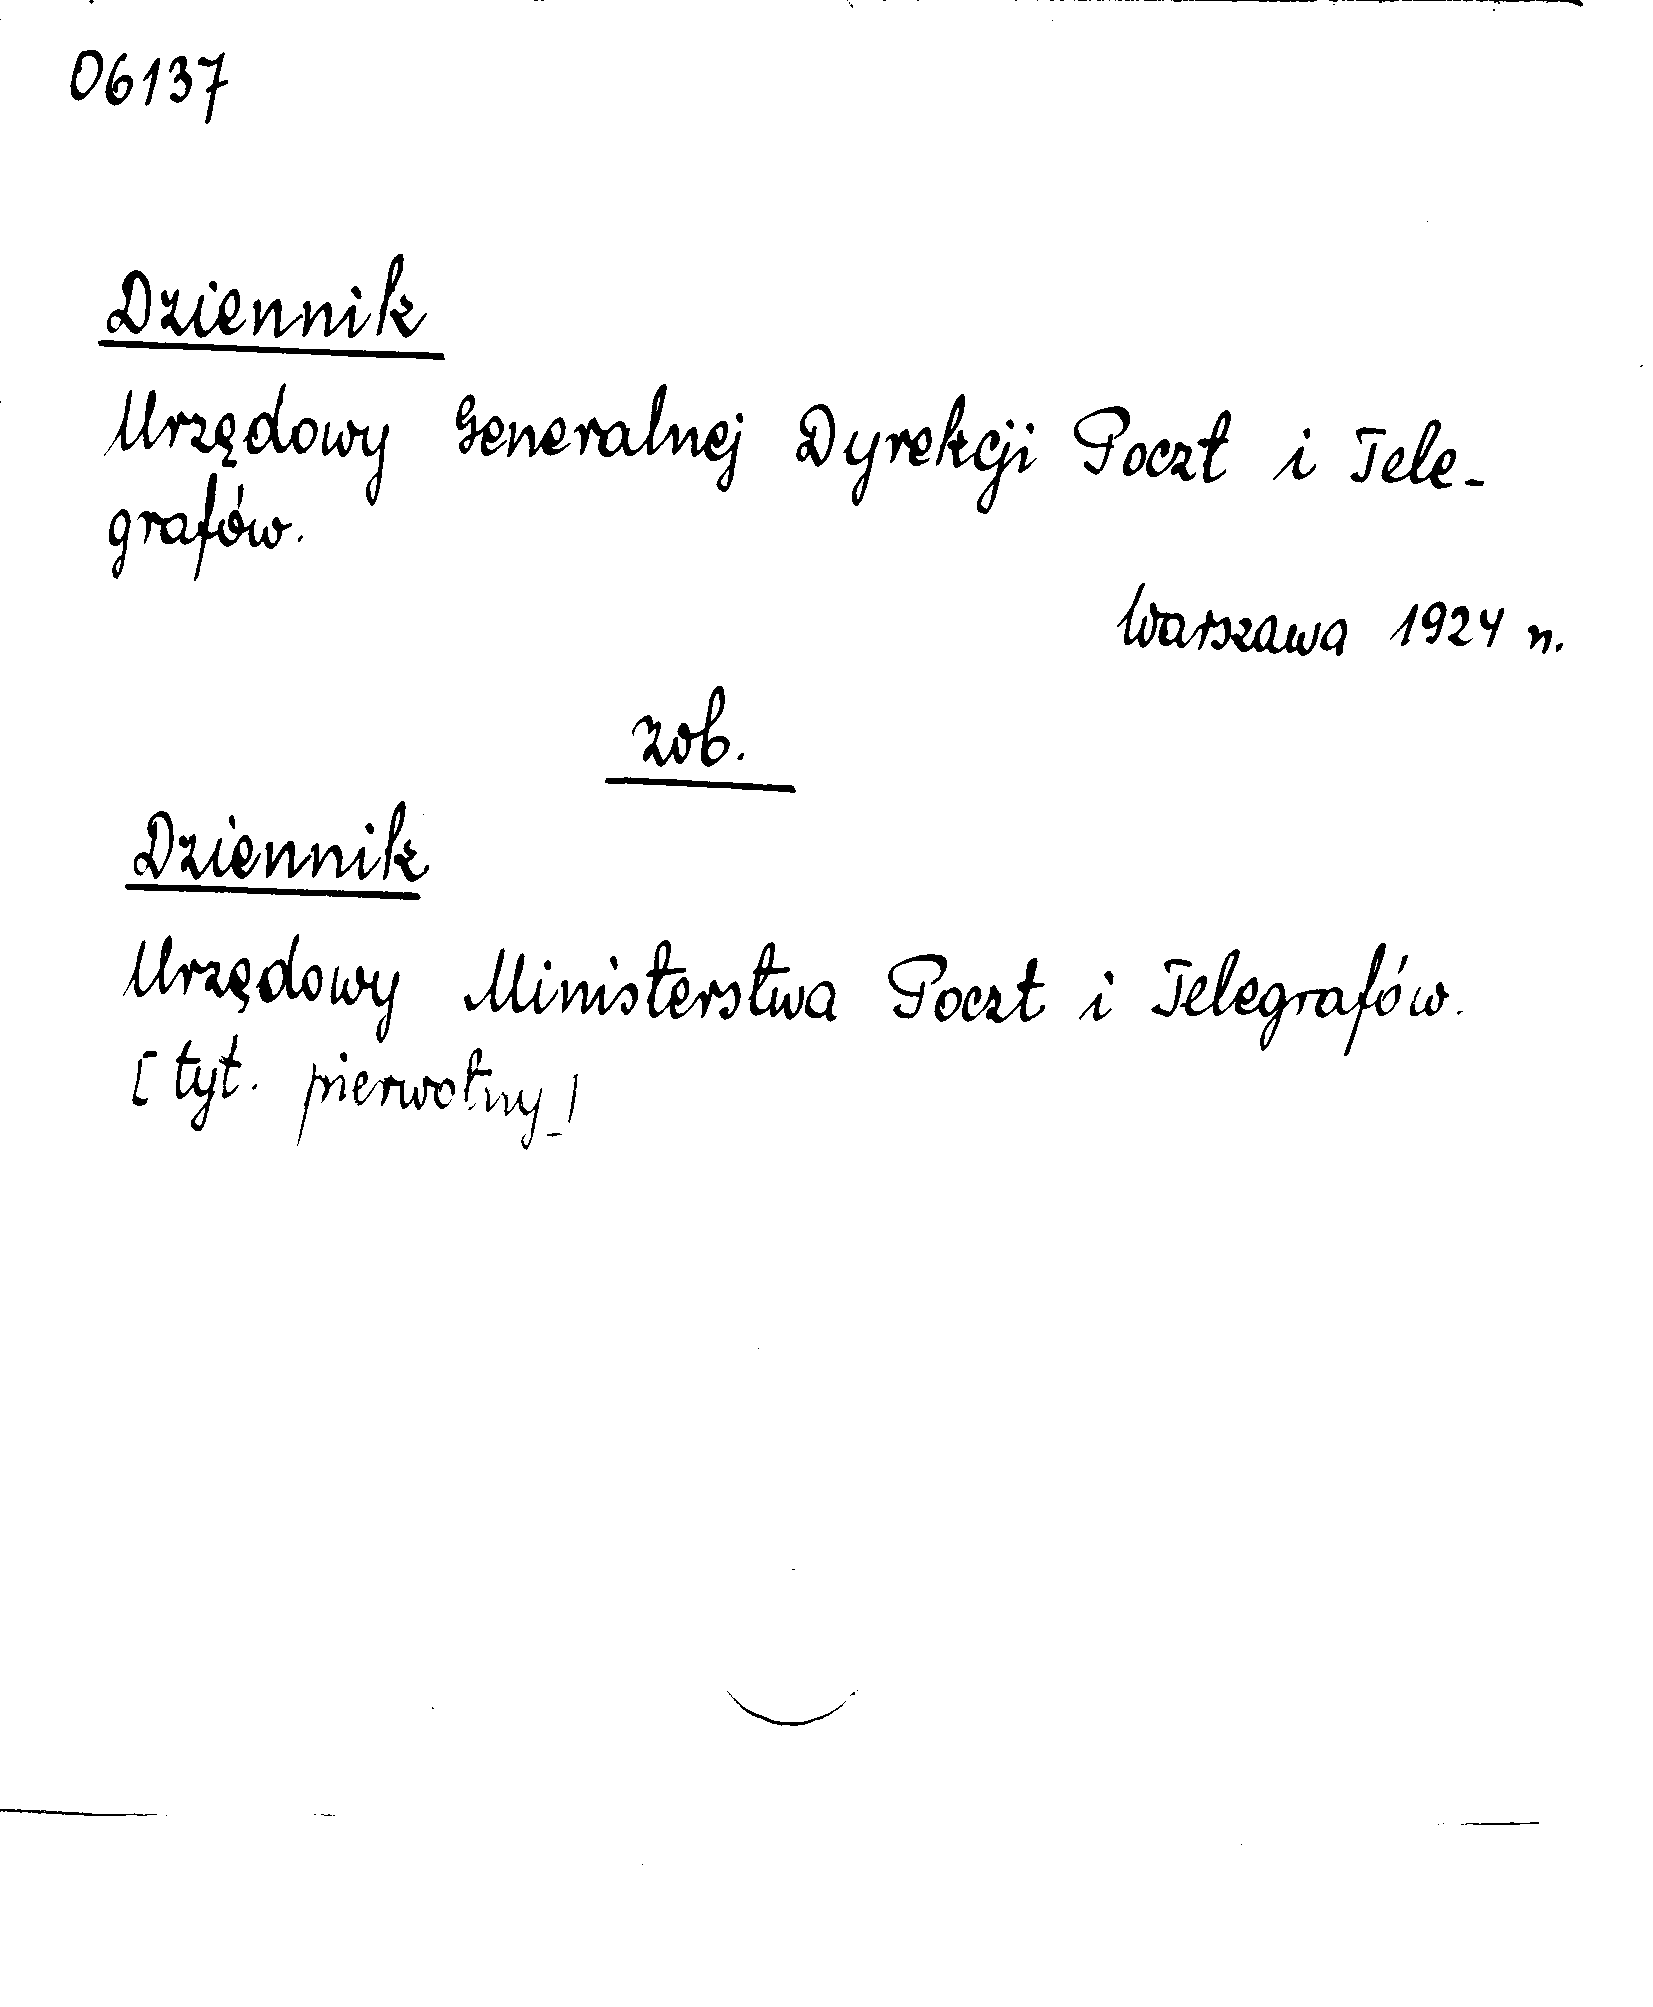 06137
Dziennik
Urzędowy Generalnej Dyrekcji Poczt i Tele-
grafów.
Warszawa 1924 n.
zob.
Dziennik
Urzędowy Ministerstwa Poczt i Telegrafów.
[tyt. pierwotny]